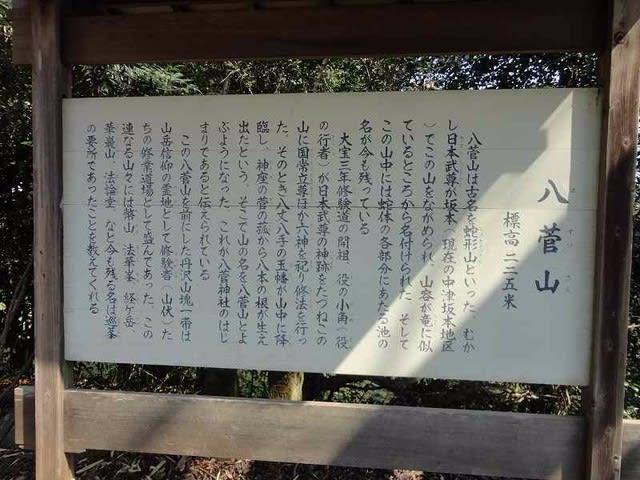 八菅山
標高 二二五米
八菅山は古名を蛇形山といった。むか
し日本武尊が坂本(現在の中津坂本地区
)でこの山をながめられ、山容が竜に似
ているところから名付けられた。そして
この山中には蛇体の各部分にあたる池の
名が今も残っている
大宝三年修験道の開祖 役の小角(役
の行者)が日本武尊の神跡をたづねこの
山に国常立尊ほか六神を祀り修法を行っ
た。そのとき八丈八手の玉幡が山中に降
臨し、神座の菅の菰から八本の根が生え
出たという。そこで山の名を八菅山とよ
ぶようになった これが八菅神社のはじ
まりであると伝えられている
この八菅山を前にした丹沢山塊一帯は
山岳信仰の霊地として修験者(山伏)た
ちの修業道場として盛んであった。この
連なる山々には幣山 法華峯 経ケ岳、
華厳山、法論堂 など今も残る名は巡峯
の要所であったことを教えてくれる